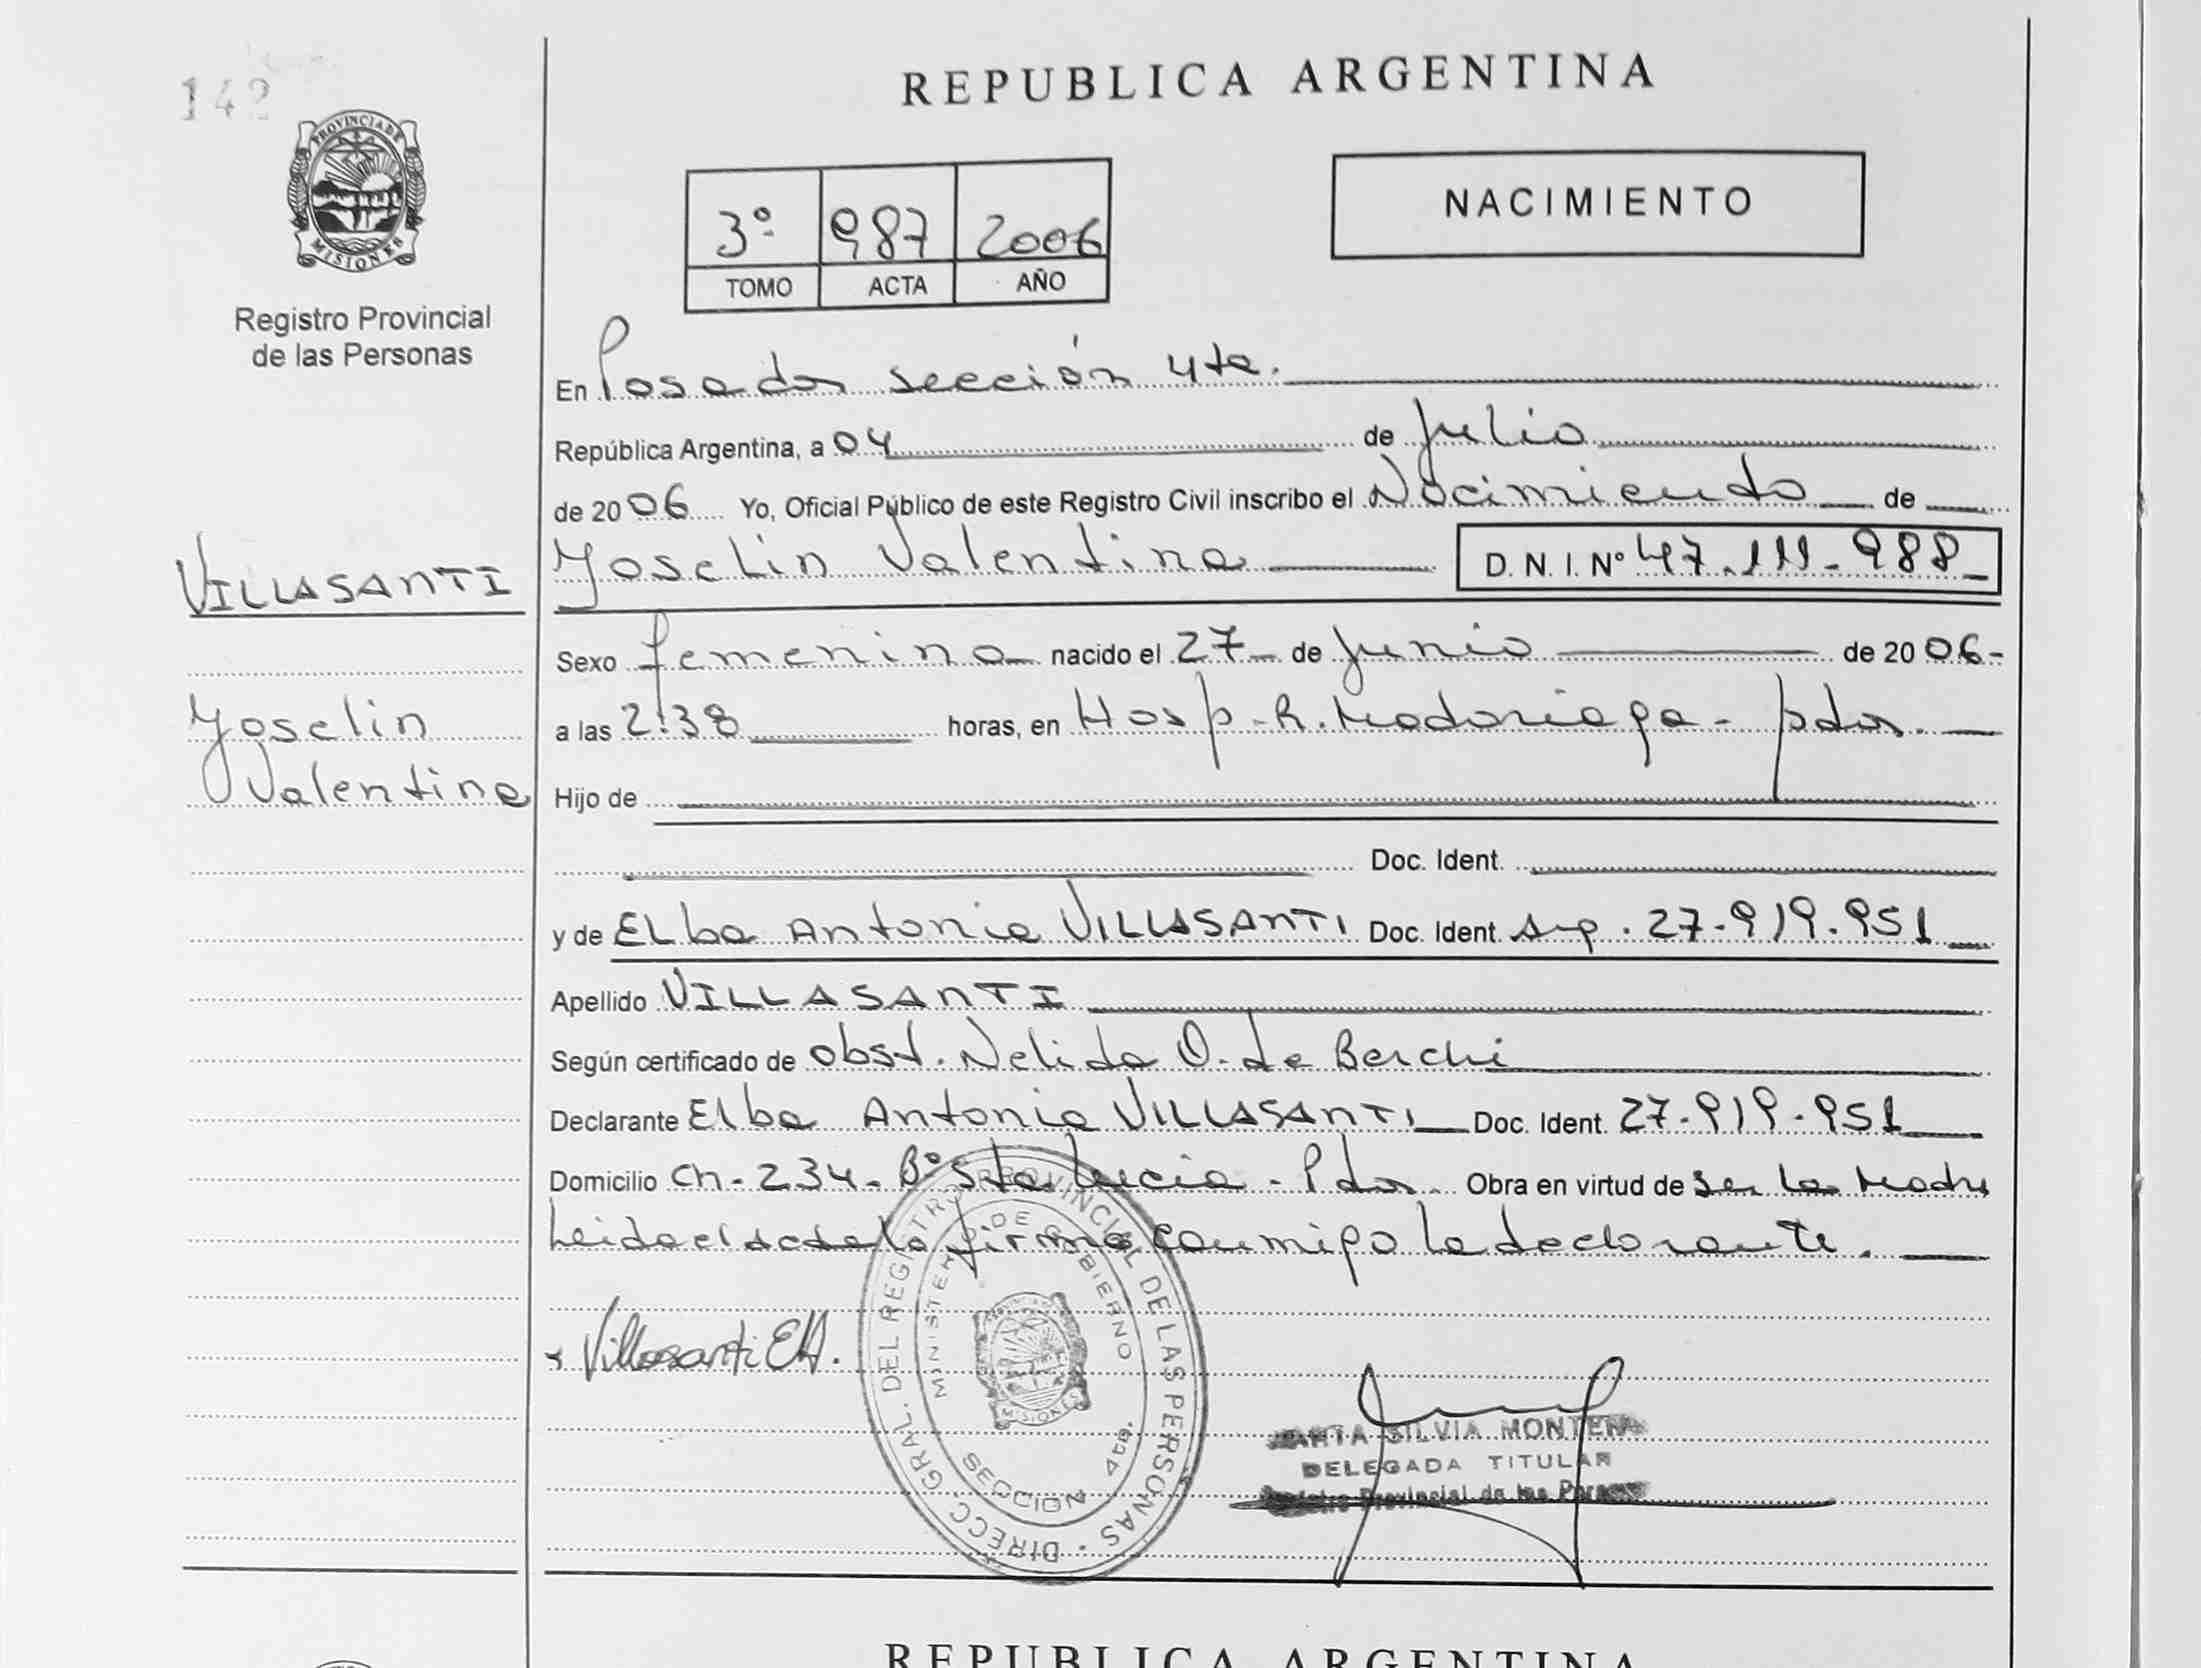 142
PROVINCIA DE
MISIONES
Registro Provincial
de las Personas
REPUBLICA ARGENTINA
3º 987 2006
TOMO ACTA AÑO
NACIMIENTO
En Posadas sección 4ta.
República Argentina, a 04 de Julio
de 2006 Yo, Oficial Público de este Registro Civil inscribo el Nacimiento de
VILLASANTI
Yoselin Valentina D. N. I. Nº 47.111-988
Sexo femenino nacido el 27 de Junio de 2006-
Yoselin
Valentina
a las 2:38 horas, en Hosp-R. Madariaga - pdas.
Hijo de
Doc. Ident.
y de Elba Antonia VILLASANTI Doc. Ident. 27-919-951
Apellido VILLASANTI
Según certificado de obst. Nelida O. de Berchi
Declarante Elba Antonia VILLASANTI Doc. Ident. 27-919-951
Domicilio Ch-234-Bº Sta Lucia - Pdas. Obra en virtud de ser la Madre
Leida el acta la firma conmigo la declarante.
Villasanti E A.
DIRECC. GRAL. DEL REGISTRO PROVINCIAL DE LAS PERSONAS
MINISTERIO DE GOBIERNO
MISIONES
SECCION 4ta.
SILVIA
DELEGADA TITULAR
Provincial de las
REPUBLICA ARGENTINA